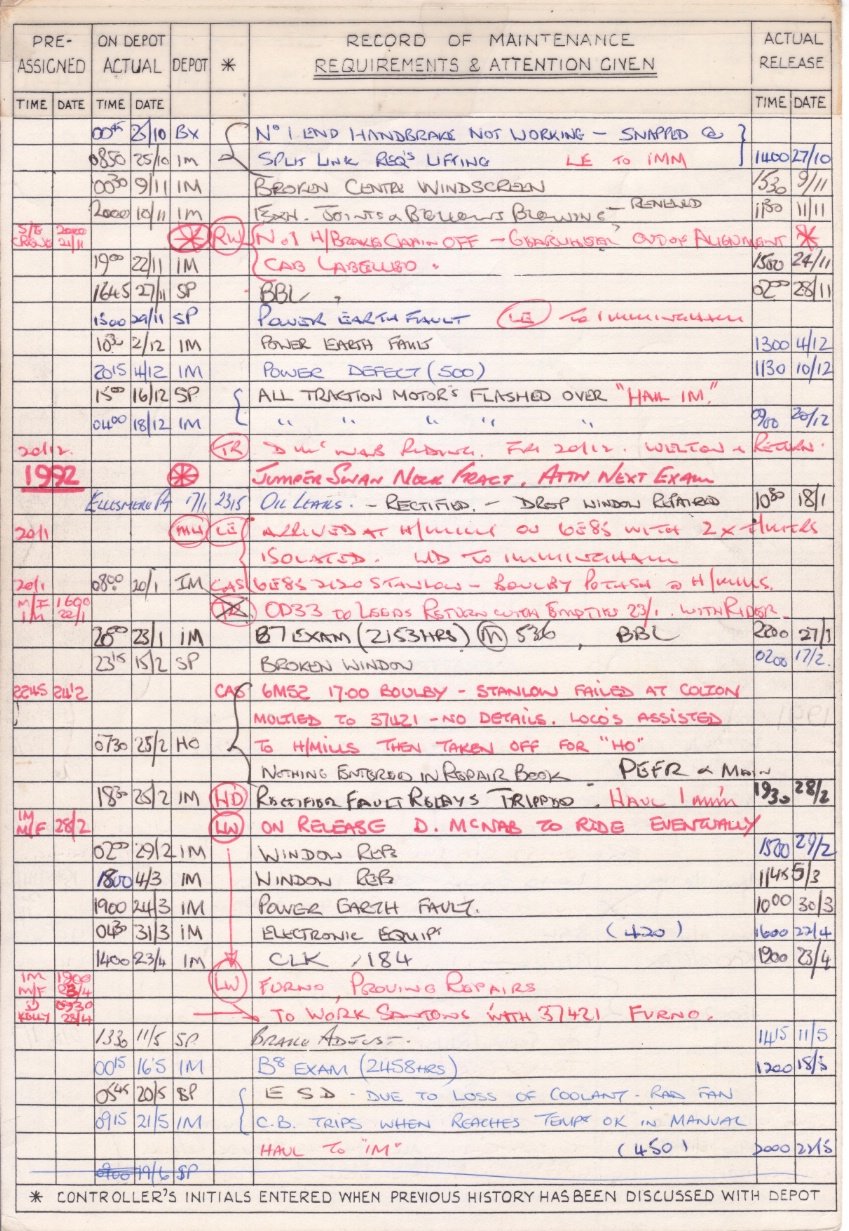 PRE- ON DEPOT RECORD OF MAINTENANCE ACTUAL
ASSIGNED ACTUAL DEPOT * REQUIREMENTS & ATTENTION GIVEN RELEASE
TIME DATE TIME DATE TIME DATE
0045 25/10 BX No 1 END HANDBRAKE NOT WORKING - SNAPPED @
0850 25/10 IM SPLIT LINK REQ'S LIFTING LE TO IMM 1400 27/10
0030 9/11 IM BROKEN CENTRE WINDSCREEN 1530 9/11
2000 10/11 IM EXH. JOINTS & BELLOWS BLOWING - RENEWED 1130 11/11
21/11 * RW No 1 H/BRAKE CHAIN OFF - GEARWHEEL OUT OF ALIGNMENT *
1900 22/11 IM CAB LABELLED. 1500 24/11
1645 27/11 SP BBL 0200 28/11
1500 29/11 SP POWER EARTH FAULT LE TO IMMINGHAM
1030 2/12 IM POWER EARTH FAULT 1300 4/12
2015 4/12 IM POWER DEFECT (500) 1130 10/12
1500 16/12 SP ALL TRACTION MOTOR'S FLASHED OVER "HAUL IM."
0400 18/12 IM " " " " " 0900 20/12
20/12. TR RIDING. FRI 20/12. WELTON & RETURN.
1992 * JUMPER SWAN NECK FRACT. ATTN NEXT EXAM
ELLESMERE PT 17/1 2315 OIL LEAKS. - RECTIFIED. - DROP WINDOW REPAIRED 1030 18/1
20/1 MW LE ARRIVED AT H/MILLS ON 6E85 WITH 2 X T/MTRS
ISOLATED. LID TO IMMINGHAM
20/1 0800 20/1 IM CAS 6E85 2120 STANLOW - BOULBY POTASH @ H/MILLS.
M/F IM 1600 22/1 OD33 TO LEEDS RETURN WITH EMPTIES 23/1. WITH RIDER.
2000 23/1 IM B7 EXAM (2153HRS) M 536, BBL 2200 27/1
2315 15/2 SP BROKEN WINDOW 0200 17/2.
2245 24/2 CAS 6M52 1700 BOULBY - STANLOW FAILED AT COLTON
MULTIED TO 37421 - NO DETAILS. LOCO'S ASSISTED
0730 25/2 HO TO H/MILLS THEN TAKEN OFF FOR "HO"
NOTHING ENTERED IN REPAIR BOOK
1830 25/2 IM HD RECTIFIER FAULT RELAYS TRIPPED. HAUL IMM'M 1930 28/2
IM M/F 28/2 LW ON RELEASE D. MCNAB TO RIDE EVENTUALLY
0200 29/2 IM WINDOW REPS 1500 29/2
1800 4/3 IM WINDOW REPS 1145 5/3
1900 24/3 IM POWER EARTH FAULT. 1000 30/3
0430 31/3 IM ELECTRONIC EQUIPT (420) 1600 22/4
1400 23/4 IM CLK 184 1900 23/4
IM M/F 1900 23/4 LW FURNO, PROVING REPAIRS
KELLY 0930 TO WORK SANTONS WITH 37421 FURNO.
1330 11/5 SP BRAKE ADJUST. 1415 11/5
0015 16/5 IM B8 EXAM (2458HRS) 1200 18/5
0545 20/5 SP E S D - DUE TO LOSS OF COOLANT - RAD FAN
0915 21/5 IM C.B. TRIPS WHEN REACHES TEMPR OK IN MANUAL
HAUL TO "IM" (450) 2000 22/5
0900 19/6 SP
* CONTROLLER'S INITIALS ENTERED WHEN PREVIOUS HISTORY HAS BEEN DISCUSSED WITH DEPOT